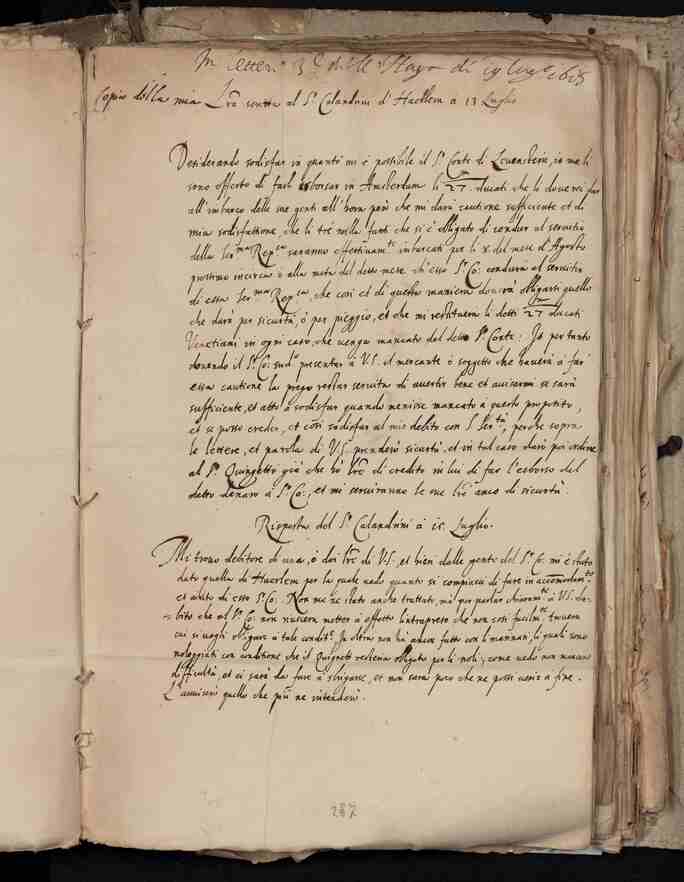 In lettera 3ª dell' Haya di 19 lug.º 1618
Copia della mia Lra scritta al Sr Calandrini d'Haerlem a 13 Luglio
Desiderando sodisfar in quanto mi è possibile il Sr Conte di Levenstein, io me li
sono offerto di farli esborsar in Amsterdam li 27 ducati che li doverei far
all'imbarco delle sue genti all'hora però che mi darà cautione sufficiente et di
mia sodisfattione, che li tre milla fanti che si è obligato di condur al servitio
della Serma Repca saranno effettivamte imbarcati per li X del mese d'Agosto
prossimo o alla metà del detto mese ch'esso Sr Co: condurrà al servitio
di essa Serma Repca, che così et di questa maniera doverà obligarsi quello
che darà per sicurtà, ò per pieggio, et che mi restituerà li detti 27 ducati
Venetiani in ogni caso, che venga mancato dal detto Sr Conte: Io pertanto
dovendo il Sr Co: sudº presentar à V.S. il mercante ò soggetto che haverà à far
essa cautione la prego restar servita di avertir bene et avisarmi se sarà
sufficiente, et atto à sodisfar quando venisse mancato à questo proposito,
et se posso creder, et così sodisfar al mio debito con S. Sertà, perche sopra
le lettere, et parola di V.S. prenderò sicurtà, et in tal caso darò poi ordine
al Sr Quingetto già che hò lre di credito in lui di far l'esborso del
detto denaro à Sr Co:, et mi serviranno le sue lre anco di sicurtà.
Risposta del Sr Calandrini à 15 Luglio.
Mi trovo debitore di una, ò doi lre di V.S., et bien dalle gente del Sr Co: mi è stato
data quella di Haerlem per la quale vedo quanto si compiace di fare in accommodamto
et aiuto di esso Sr Co: Non me ne stato anco trattato, mà per parlar chiaramte à V.S. du-
bito che al Sr Co: non riuscirà metter à effetto l'intrapresa che non così facilmte troverà
chi si voglia obligare à tale conditº. In oltra non hà ancor fatto con li marinari, li quali sono
noleggiati con conditione che il Quignetti resteria obligato per li noli, come vedo non mancano
difficultà, et ci sarà da fare à sbrigarse, et non sarà poco che ne possi venir à fine.
L'avviserò quello che più ne intenderò.
287